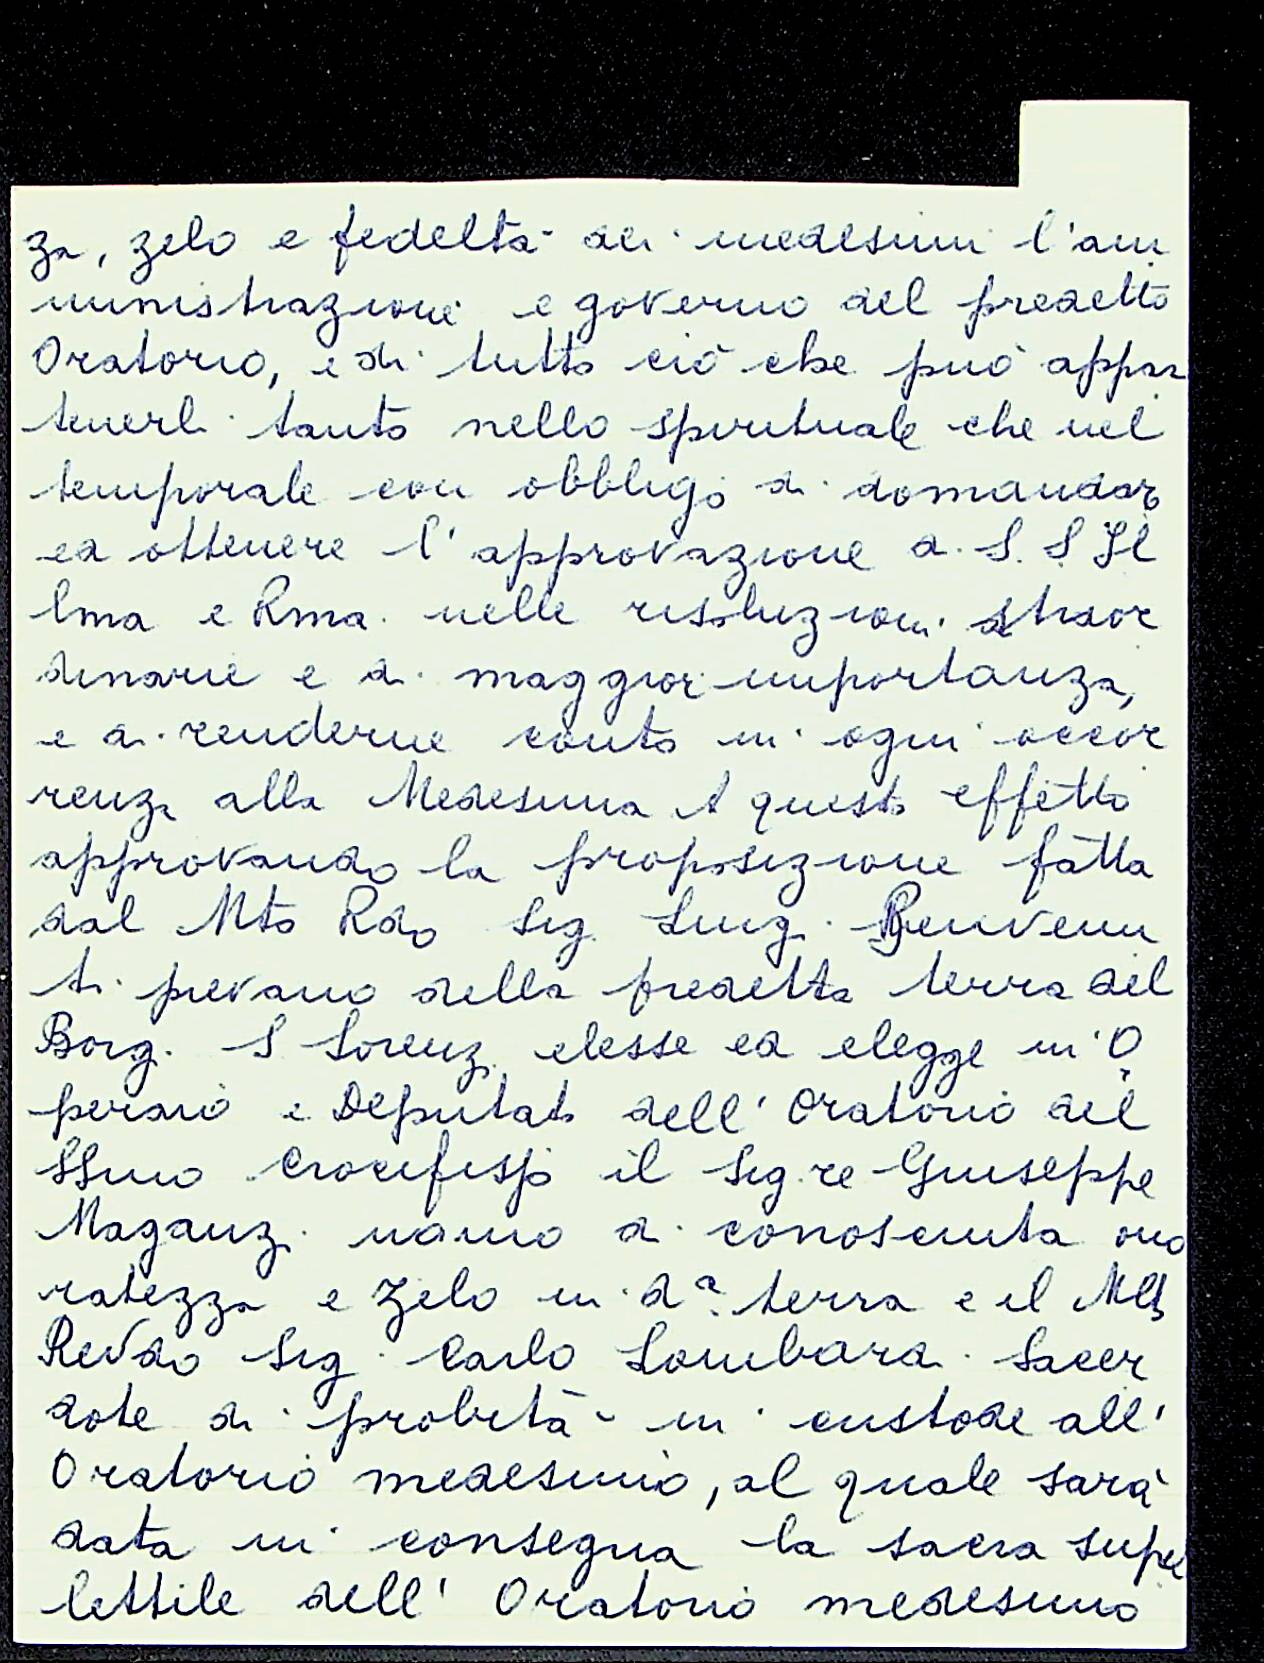 za, zelo e fedeltà dei medesimi l'am
ministrazione e governo del predetto
Oratorio, e di tutto ciò che può appar
tenerli tanto nello spirituale che nel
temporale con obbligo di domandar
ed ottenere l'approvazione a S. S Il
lma e Rma. nelle risoluzioni straor
dinarie e di maggior importanza,
e di renderne conto in ogni occor
renza alla Medesima A questo effetto
approvando la proposizione fatta
dal Mto Rdo Sig. Luigi Benvenu
ti pievano della predetta terra del
Borgo S Lorenzo elesse ed elegge in O
peraio e Deputato dell' Oratorio del
SSmo Crocifisso il Sig.re Giuseppe
Maganzi uomo di conosciuta ono
ratezza e zelo in da. terra e il Mto
Revdo Sig. Carlo Lombardi Sacer
dote di probità in custode all'
Oratorio medesimo, al quale sarà
data in consegna la sacra supel
lettile dell' Oratorio medesimo